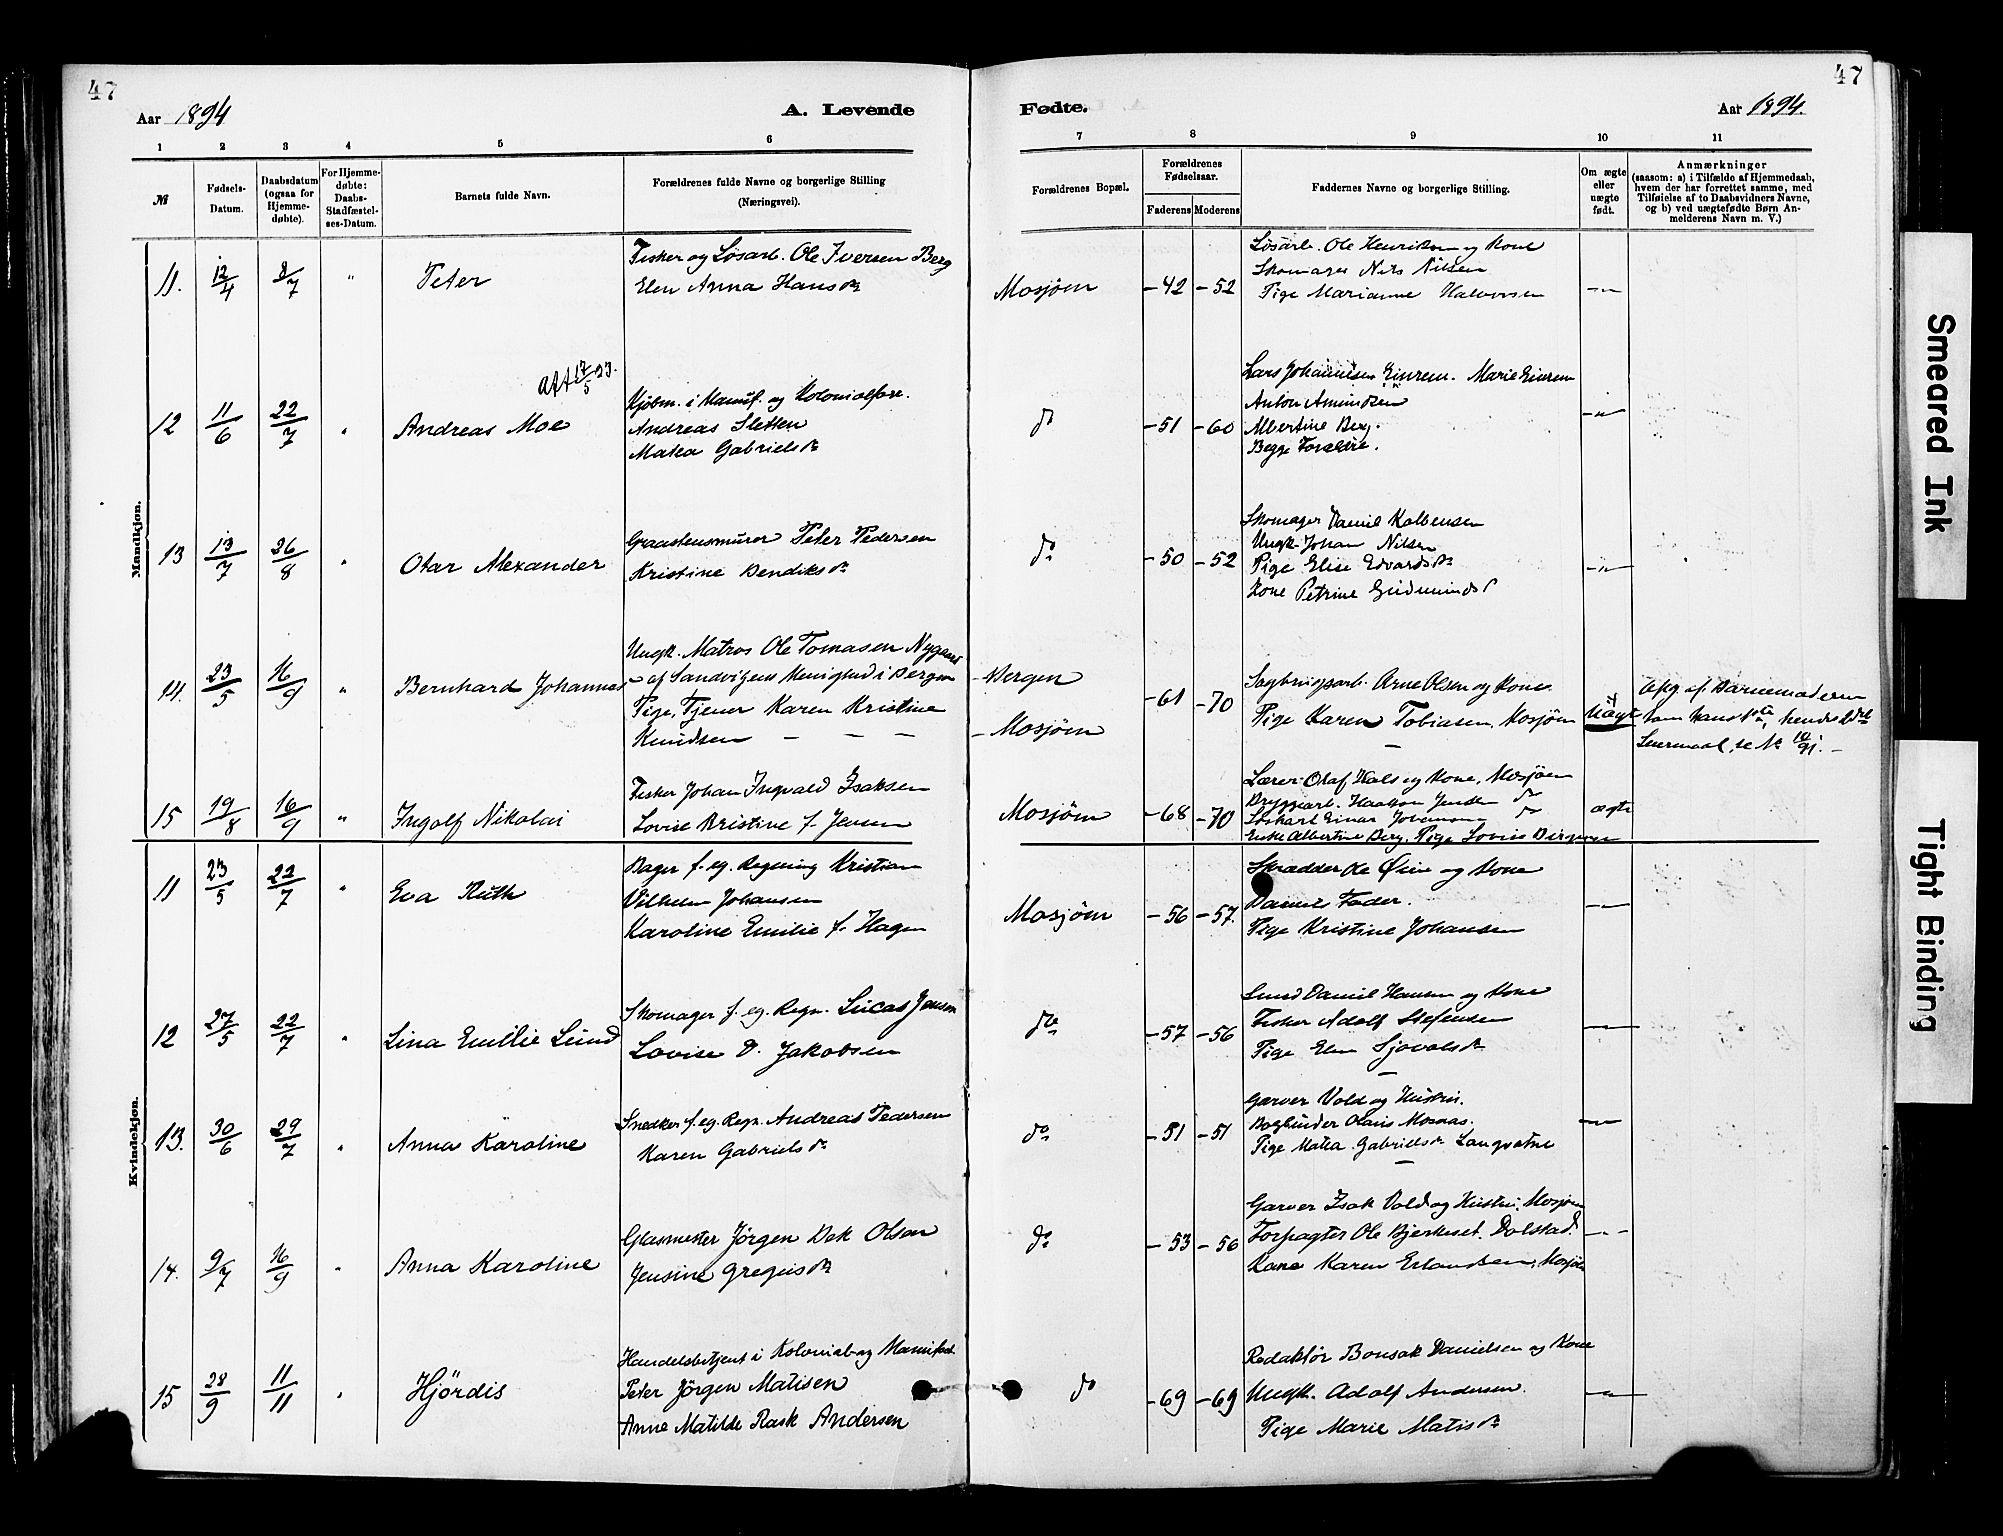 47
Aar 1894
A. Levende
1 2 3 4 5 6
№
Fødsels-Datum.
Daabsdatum (ogsaa for Hjemmedøbte).
For Hjemmedøbte: Daabs-Stadfæstelses-Datum.
Barnets fulde Navn.
Forældrenes fulde Navne og borgerlige Stilling (Næringsvei).
Mandkjøn.
11. 12/4 8/7 " Peter
Fisker og Løsarb. Ole Iversen Berg
Elen Anna Hansdr
12 11/6 22/7 " Andreas Moe
Att 17/5 33.
Kjøbm. i Manuf. og Kolonialforr.
Andreas Sletten
Matea Gabrielsdr
13 13/7 26/8 " Otar Alexander
Graastensmurer Peter Pedersen
Kristine Bendiksdr
14. 23/5 16/9 " Bernhard Johannes
Ungk. Matros Ole Tomasen Nygaard
af Sandvigens Menighed i Bergen
Pige, Tjener Karen Kristine
Knudsen — — —
15 19/8 16/9 " Ingolf Nikolai
Fisker Johan Ingvald Isaksen
Lovise Kristine f. Jensen
Kvindekjøn.
11 23/5 22/7 " Eva Ruth
Bager f. eg. Regning Kristian
Vilhelm Johansen
Karoline Emilie f. Hagen
12 27/5 22/7 " Lina Emilie Lund
Skomager f. eg. Regn. Lucas Jenson
Lovise D. Jakobsen
13. 30/6 29/7 " Anna Karoline
Snedker f. eg. Regn. Andreas Pedersen
Karen Gabrielsdr
14. 9/7 16/9 " Anna Karoline
Glasmester Jørgen Dek Olsen
Jensine Gregusdr
15 28/9 11/11 " Hjørdis
Handelsbetjent i Kolonial og Manufakt
Peter Jørgen Matisen
Anne Matilde Rask Andersen
47
Fødte.
Aar 1894.
7 8 9 10 11
Forældrenes Bopæl.
Forældrenes Fødselsaar.
Faderens Moderens
Faddernes Navne og borgerlige Stilling.
Om ægte eller uægte født.
Anmærkninger
(saasom: a) i Tilfælde af Hjemmedaab,
hvem der har forrettet samme, med
Tilføielse af to Daabsvidners Navne,
og b) ved uægtefødte Børn Anmelderens Navn m. V.)
Mosjøen -42 -52
Løsarb. Ole Henriksen og Kone
Skomager Nils Nilsen
Pige Marianne Halvorsen
—"—
do -51 -60
Lars Johannesen Einrem. Marie Einrem
Anton Amundsen
Albertine Berg.
Begge Forældre.
—"—
do -50 -52
Skomager Daniel Kolbensen
Ungk. Johan Nilsen
Pige Elise Edvardsdr
Kone Petrine Gudmundsd
—"—
-Bergen
-Mosjøen
-61 -70
Sagbrugsarb. Arne Olsen og Kone
Pige Karen Tobiasen, Mosjøen
Uægt
Opg. af Barnemoderen
som hans 1ste, hendes 2det
Leiermaal, se № 10/91. —
Mosjøen -68 -70
Lærer Olaf Hals og Kone, Mosjøen
Bryggearb. Haakon Jensen do
Løskarl Einar Johansen do
Enke Albertine Berg. Pige Lovise
ægte
Mosjøen -56 -57.
Skrædder Ole Øien og Kone
Daniel Fader.
Pige Kristine Johansen
—"—
do -57 -56
Smed Daniel Hansen og Kone
Fisker Adolf Stefensen
Pige Elen Sjovolsdr
—"—
do -51 -51
Garver Vold og Hustru.
Bogbinder Olaus Mosnæs.
Pige Matea Gabrielsdr Langvatne
—"—
do -53 -56
Garver Isak Vold og Hustru, Mosjøen
Forpagter Ole Bjerkeset. Dolstad.
Kone Karen Erlandsen, Mosjøen
—"—
do -69 -69
Redaktør Bonsak Danielsen og Kone
Ungk. Adolf Andersen
Pige Marie Matisdr
—"—
Smeared Ink
Tight Binding